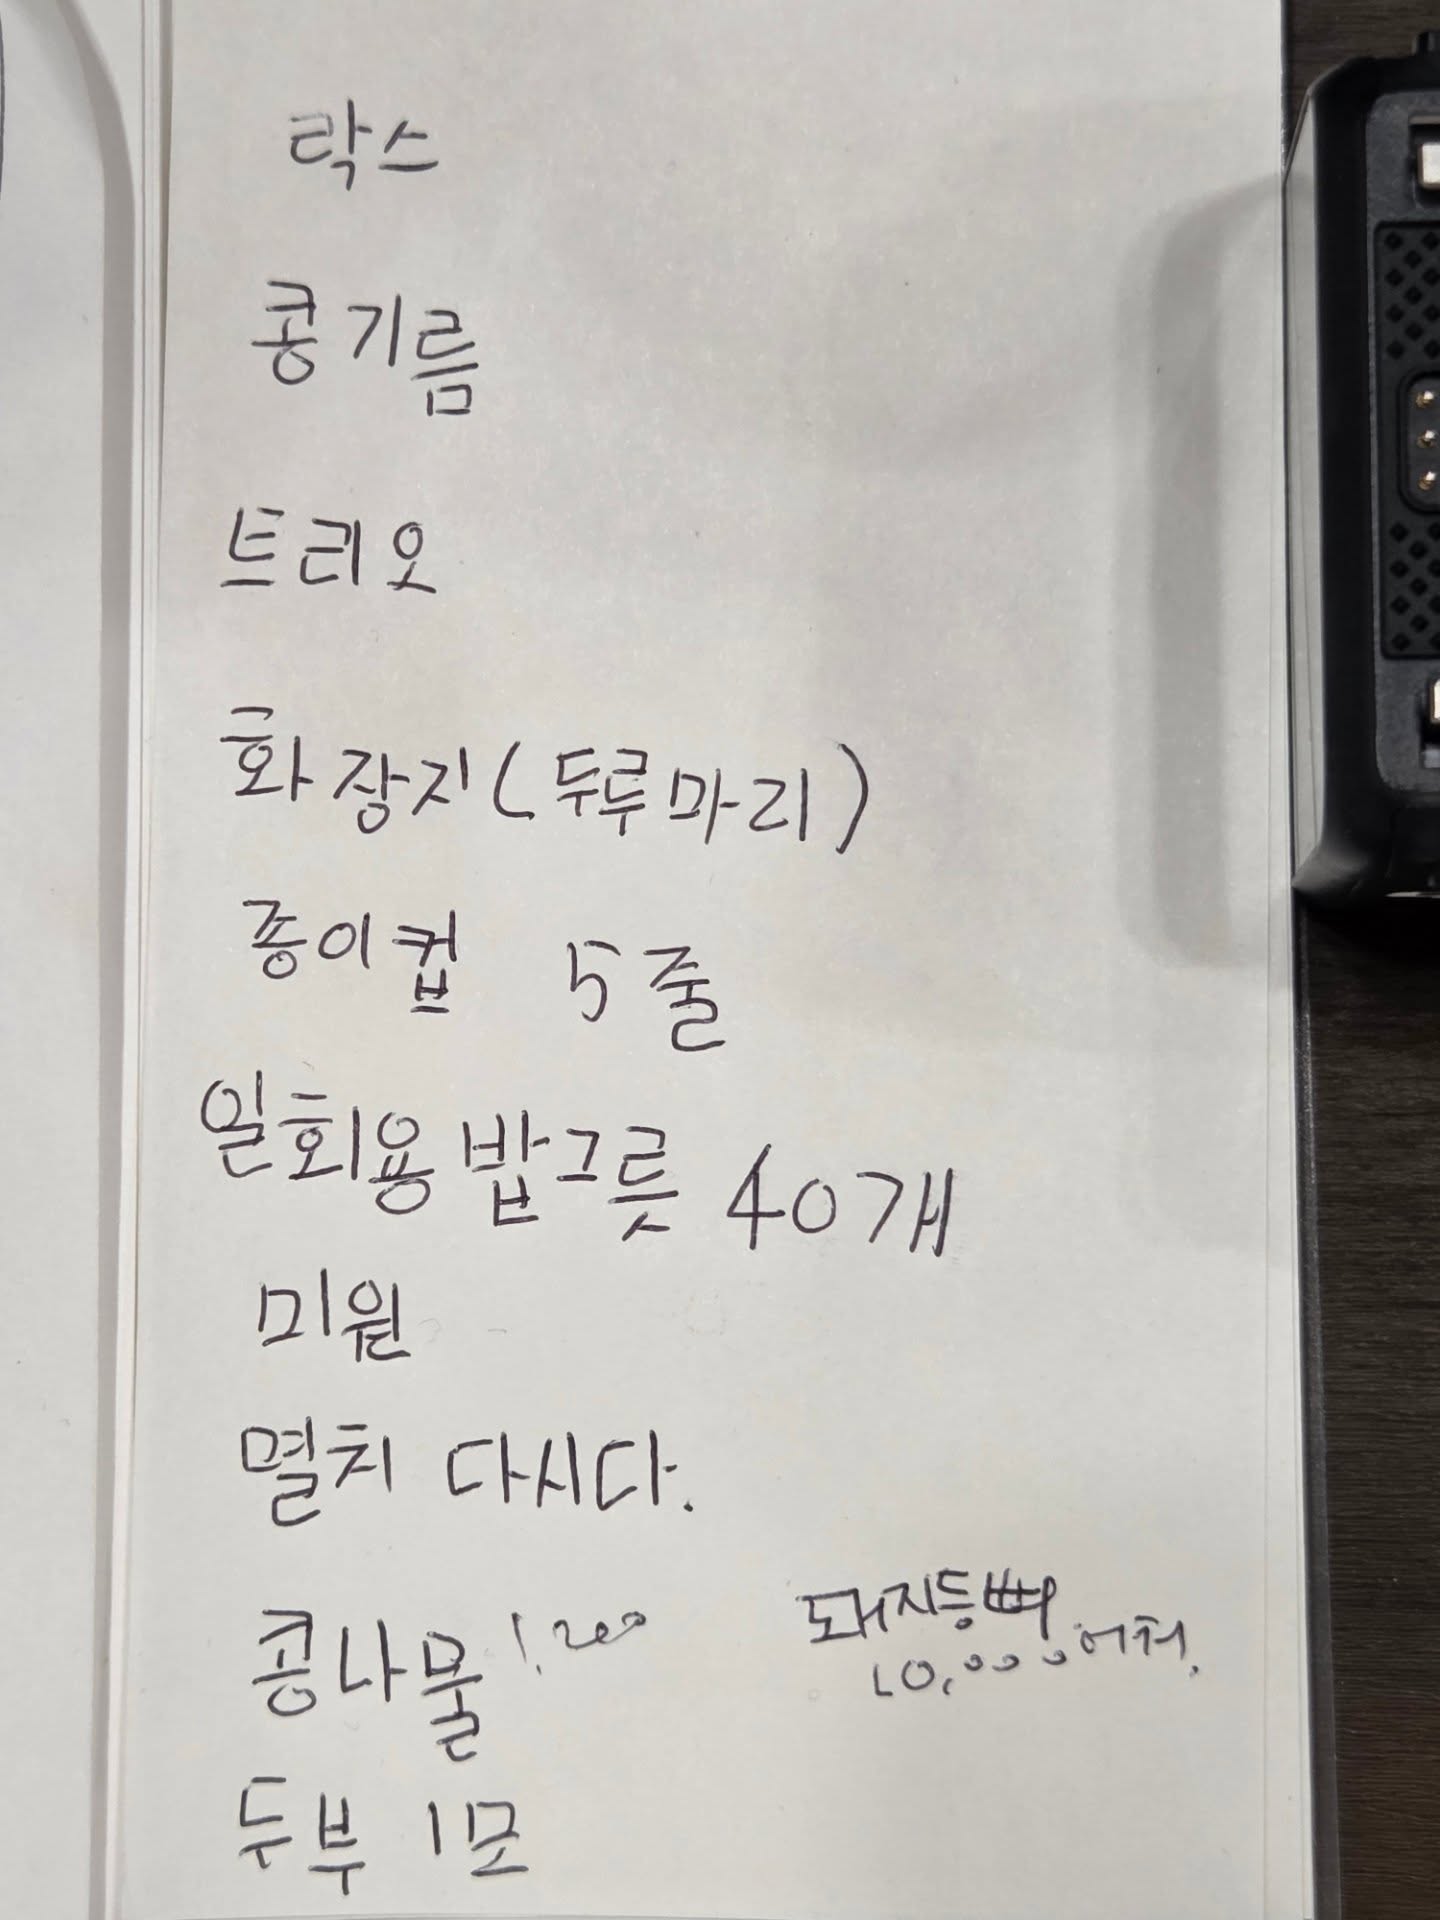 락스
콩기름
트리오
화장지(두루마리)
종이컵 5줄
일회용 밥그릇 40개
미원
멸치 다시다.
콩나물 1.200
돼지등뼈
10,000어치.
두부 1모